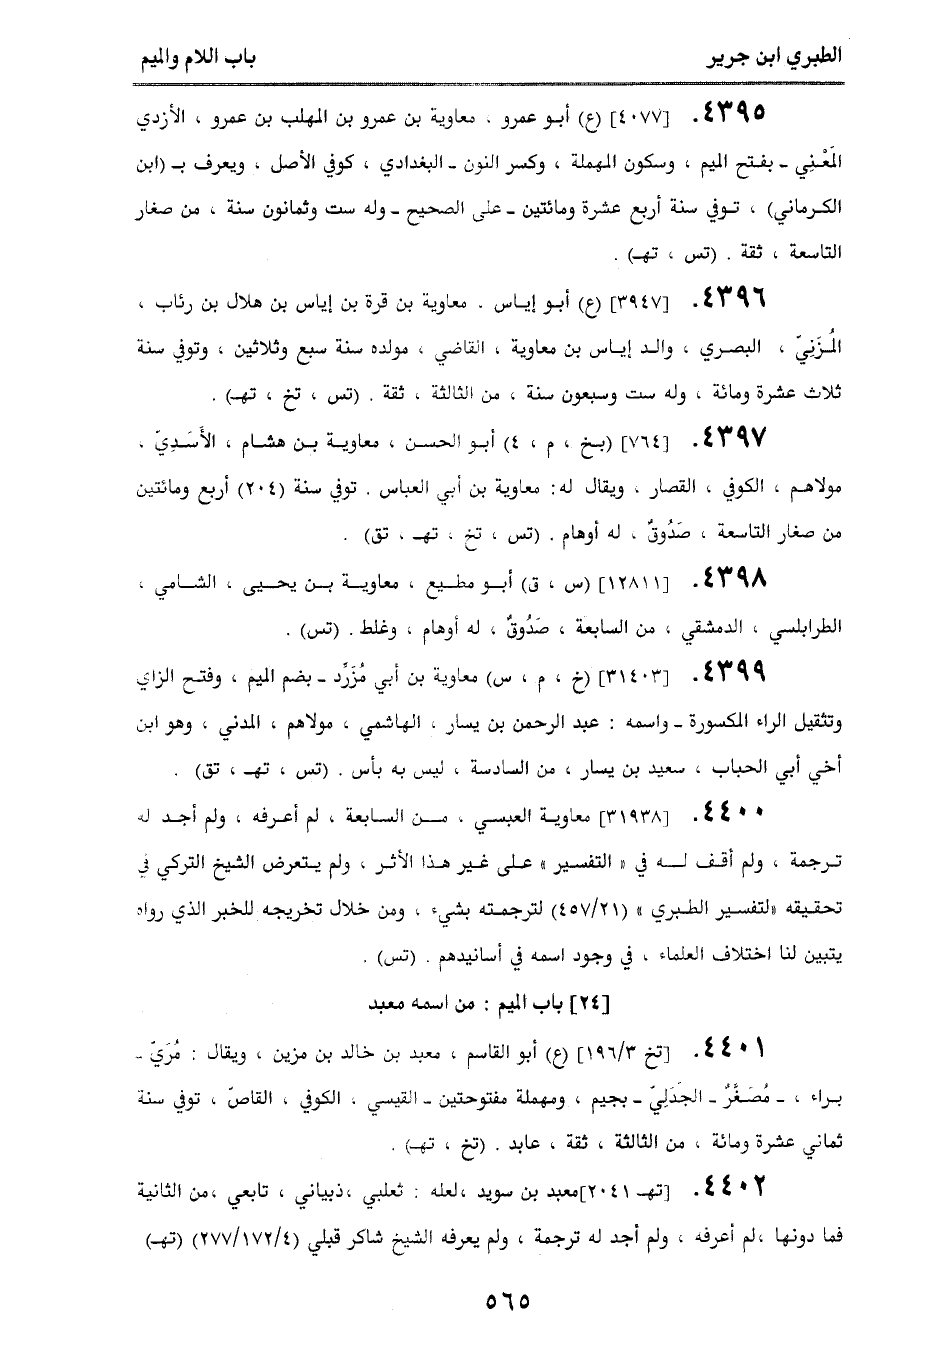 الطبري ابن جرير
باب اللام والميم
٤٣٩٥. [٤٠٧٧] (ع) أبو عمرو ، معاوية بن عمرو بن المهلب بن عمرو ، الأزدي
المَعْنِي ـ بفتح الميم ، وسكون المهملة ، وكسر النون ـ البغدادي ، كوفي الأصل ، ويعرف بـ (ابن
الكرماني) ، توفي سنة أربع عشرة ومائتين ـ على الصحيح ـ وله ست وثمانون سنة ، من صغار
التاسعة ، ثقة . (تس ، تهـ) .
٤٣٩٦. [٣٩٤٧] (ع) أبو إياس . معاوية بن قرة بن إياس بن هلال بن رئاب ،
المُزَنِيّ ، البصري ، والد إياس بن معاوية ، القاضي ، مولده سنة سبع وثلاثين ، وتوفي سنة
ثلاث عشرة ومائة ، وله ست وسبعون سنة ، من الثالثة ، ثقة . (تس ، تخ ، تهـ) .
٤٣٩٧. [٧٦٤] (بخ ، م ، ٤) أبو الحسن ، معاوية بن هشام ، الأَسَدِيّ ،
مولاهم ، الكوفي ، القصار ، ويقال له: معاوية بن أبي العباس . توفي سنة (٢٠٤) أربع ومائتين
من صغار التاسعة ، صَدُوقٌ ، له أوهام . (تس ، تخ ، تهـ ، تق) .
٤٣٩٨. [١٢٨١١] (س ، ق) أبو مطيع ، معاوية بن يحيى ، الشامي ،
الطرابلسي ، الدمشقي ، من السابعة ، صَدُوقٌ ، له أوهام ، وغلط . (تس) .
٤٣٩٩. [٣١٤٠٣] (خ ، م ، س) معاوية بن أبي مُزَرِّد ـ بضم الميم ، وفتح الزاي
وتثقيل الراء المكسورة ـ واسمه : عبد الرحمن بن يسار ، الهاشمي ، مولاهم ، المدني ، وهو ابن
أخي أبي الحباب ، سعيد بن يسار ، من السادسة ، ليس به بأس . (تس ، تهـ ، تق) .
٤٤٠٠. [٣١٩٣٨] معاوية العبسي ، من السابعة ، لم أعرفه ، ولم أجد له
ترجمة ، ولم أقف له في « التفسير » على غير هذا الأثر ، ولم يتعرض الشيخ التركي في
تحقيقه «لتفسير الطبري » (٤٥٧/٢١) لترجمته بشيء ، ومن خلال تخريجه للخبر الذي رواه
يتبين لنا اختلاف العلماء ، في وجود اسمه في أسانيدهم . (تس) .
[٢٤] باب الميم : من اسمه معبد
٤٤٠١. [تخ ١٩٦/٣] (ع) أبو القاسم ، معبد بن خالد بن مزين ، ويقال : مُرَيّ ـ
براء ، ـ مُصَغَّرٌ ـ الجَدَلِيّ ـ بجيم ، ومهملة مفتوحتين ـ القيسي ، الكوفي ، القاصّ ، توفي سنة
ثماني عشرة ومائة ، من الثالثة ، ثقة ، عابد . (تخ ، تهـ) .
٤٤٠٢. [تهـ ٢٠٤١]معبد بن سويد ،لعله : ثعلبي ،ذبياني ، تابعي ،من الثانية
فما دونها ،لم أعرفه ، ولم أجد له ترجمة ، ولم يعرفه الشيخ شاكر قبلي (٢٧٧/١٧٢/٤) (تهـ)
٥٦٥